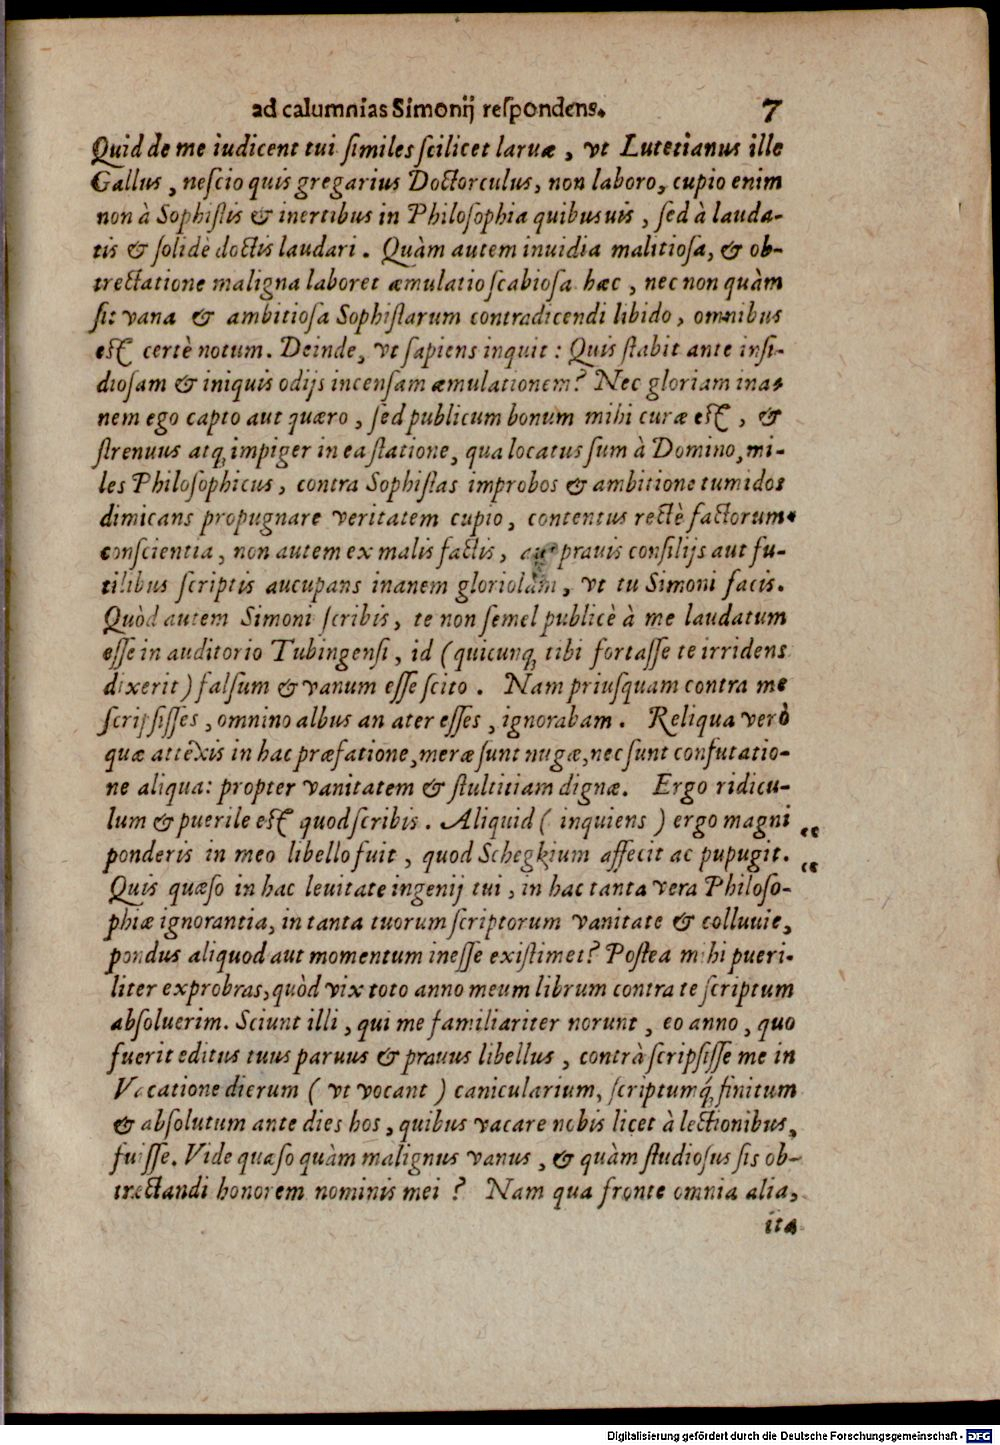 ad calumnias Simonij respondens. 7
Quid de me iudicent tui similes scilicet laruæ, vt Lutetianus ille
Gallus, nescio quis gregarius Doctorculus, non laboro, cupio enim
non à Sophistis & inertibus in Philosophia quibusuis, sed à lauda-
tis & solidè doctis laudari. Quàm autem inuidia malitiosa, & ob-
trectatione maligna laboret æmulatio scabiosa hæc, nec non quàm
sit vana & ambitiosa Sophistarum contradicendi libido, omnibus
est certè notum. Deinde, vt sapiens inquit: Quis stabit ante insi-
diosam & iniquis odijs incensam æmulationem? Nec gloriam ina-
nem ego capto aut quæro, sed publicum bonum mihi curæ est, &
strenuus atq; impiger in ea statione, qua locatus sum à Domino, mi-
les Philosophicus, contra Sophistas improbos & ambitione tumidos
dimicans propugnare veritatem cupio, contentus rectè factorum
conscientia, non autem ex malis factis, aut prauis consilijs aut fu-
tilibus scriptis aucupans inanem gloriolam, vt tu Simoni facis.
Quòd autem Simoni scribis, te non semel publicè à me laudatum
esse in auditorio Tubingensi, id (quicunq; tibi fortasse te irridens
dixerit) falsum & vanum esse scito. Nam priusquam contra me
scripsisses, omnino albus an ater esses, ignorabam. Reliqua verò
quæ attexis in hac præfatione, meræ sunt nugæ, nec sunt confutatio-
ne aliqua: propter vanitatem & stultitiam dignæ. Ergo ridicu-
lum & puerile est quod scribis. Aliquid (inquiens) ergo magni „
ponderis in meo libello fuit, quod Schegkium affecit ac pupugit. „
Quis quæso in hac leuitate ingenij tui, in hac tanta vera Philoso-
phiæ ignorantia, in tanta tuorum scriptorum vanitate & colluuie,
pondus aliquod aut momentum inesse existimet? Postea mihi pueri-
liter exprobras, quòd vix toto anno meum librum contra te scriptum
absoluerim. Sciunt illi, qui me familiariter norunt, eo anno, quo
fuerit editus tuus paruus & prauus libellus, contrà scripsisse me in
Vacatione dierum (vt vocant) canicularium, scriptumq́; finitum
& absolutum ante dies hos, quibus vacare nobis licet à lectionibus,
fuisse. Vide quæso quàm malignus vanus, & quàm studiosus sis ob-
trectandi honorem nominis mei? Nam qua fronte omnia alia,
ita
Digitalisierung gefördert durch die Deutsche Forschungsgemeinschaft - DFG